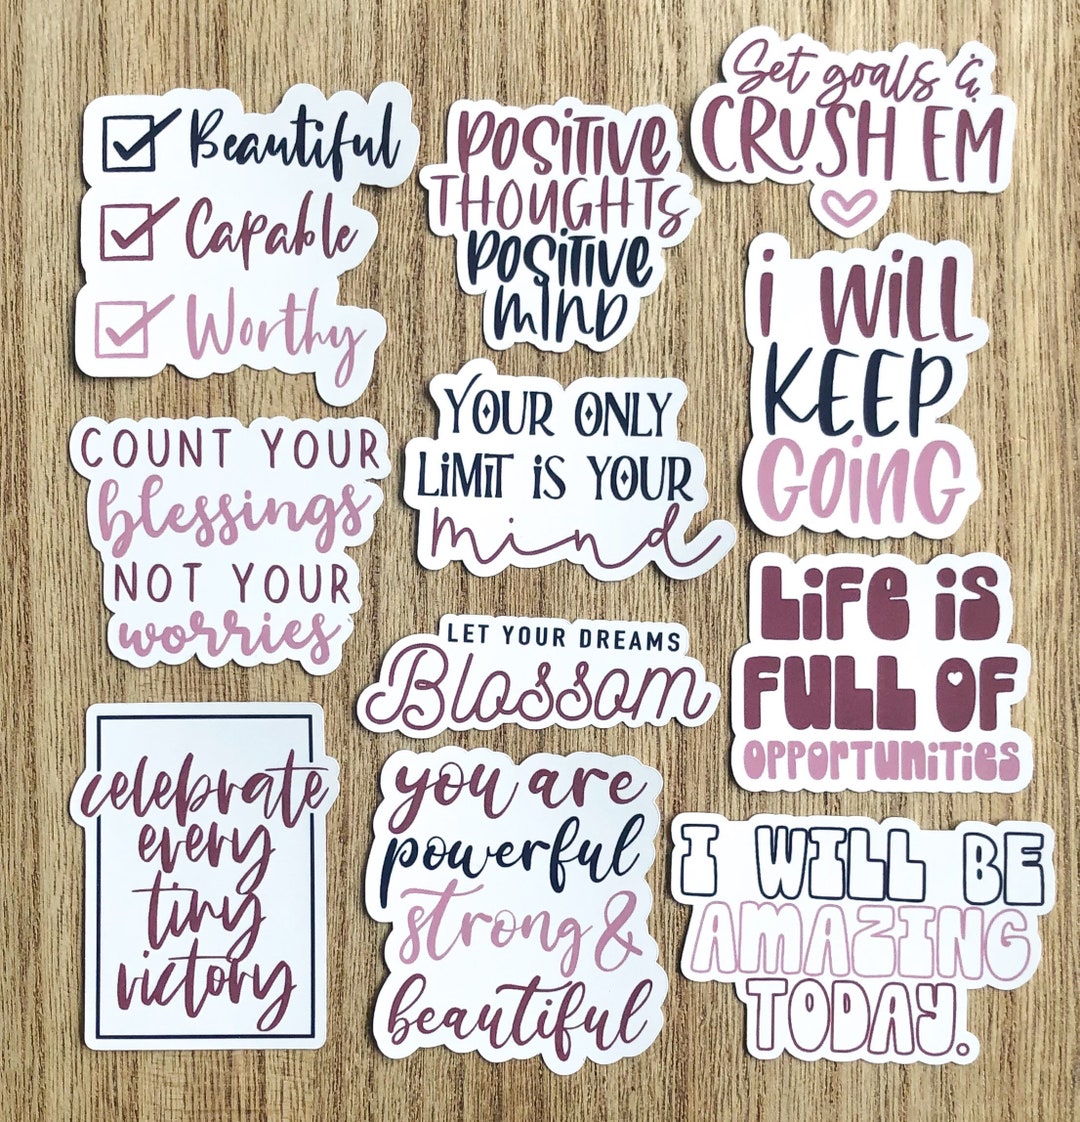 Beautiful
Capable
Worthy
POSITIVE
THOUGHTS
POSITIVE
MIND
Set goals &
CRUSH EM
i WiLL
KEEP
GOiNG
COUNT YOUR
blessings
NOT YOUR
worries
YOUR ONLY
LiMiT iS YOUR
mind
LET YOUR DREAMS
Blossom
LiFe iS
FULL OF
OPPORTUNiTieS
celebrate
every
tiny
victory
you are
powerful
strong &
beautiful
I WILL BE
AMAZING
TODAY.